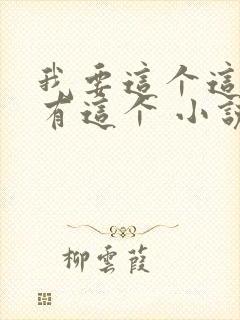 我要這个這
有這个 小說
柳雲葭